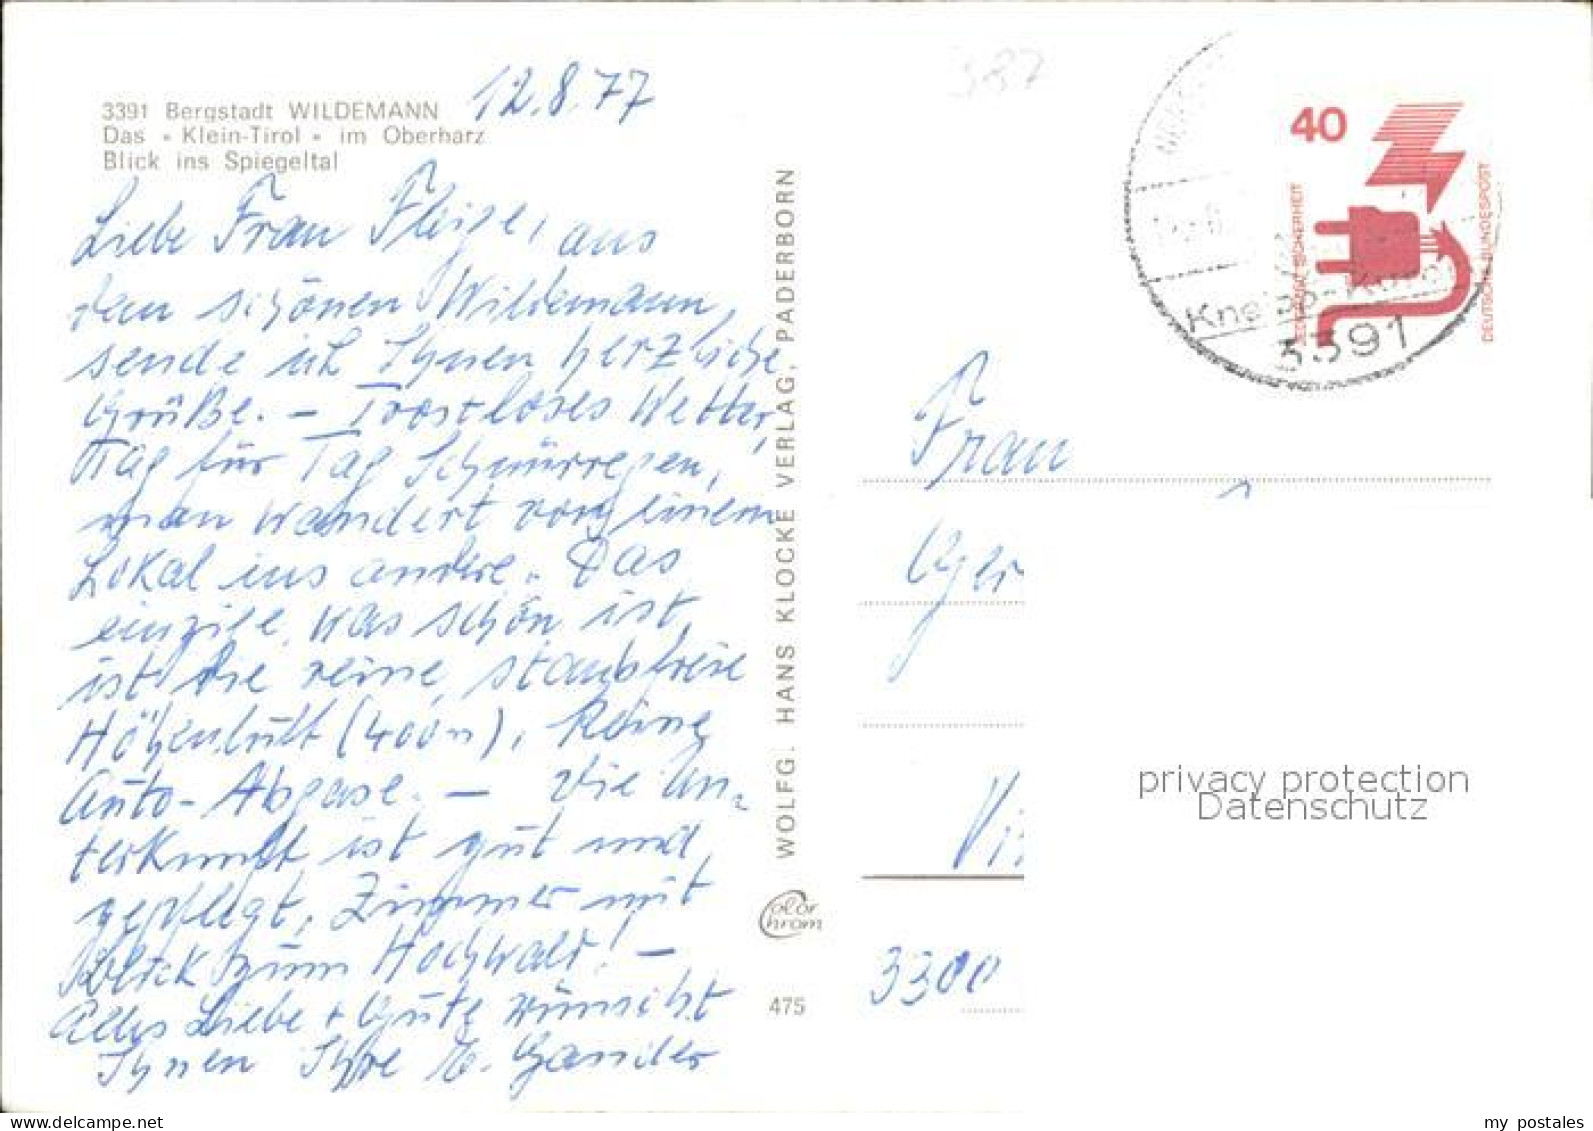 12.8.77
3391 Bergstadt WILDEMANN
Das « Klein-Tirol » im Oberharz
Blick ins Spiegeltal
Liebe Frau Fleige, aus
dem schönen Wildemann,
sende ich Ihnen herzliche
Grüße. – Trostloses Wetter,
Tag für Tag Schnürregen,
man wandert von einem
Lokal ins andere. Das
einzige, was schön ist,
ist die reine, staubfreie
Höhenluft (400 m), keine
Auto-Abgase. – Die Un-
terkunft ist gut und
gepflegt, Zimmer mit
Blick zum Hochwald! –
Alles Liebe + Gute wünscht
Ihnen Ihre E. Gander
WOLFG. HANS KLOCKE VERLAG, PADERBORN
Color
chrom
475
387
40
JEDERZEIT SICHERHEIT
DEUTSCHE BUNDESPOST
3391
Frau
Ger
3300
privacy protection
Datenschutz
www.delcampe.net
my_postales